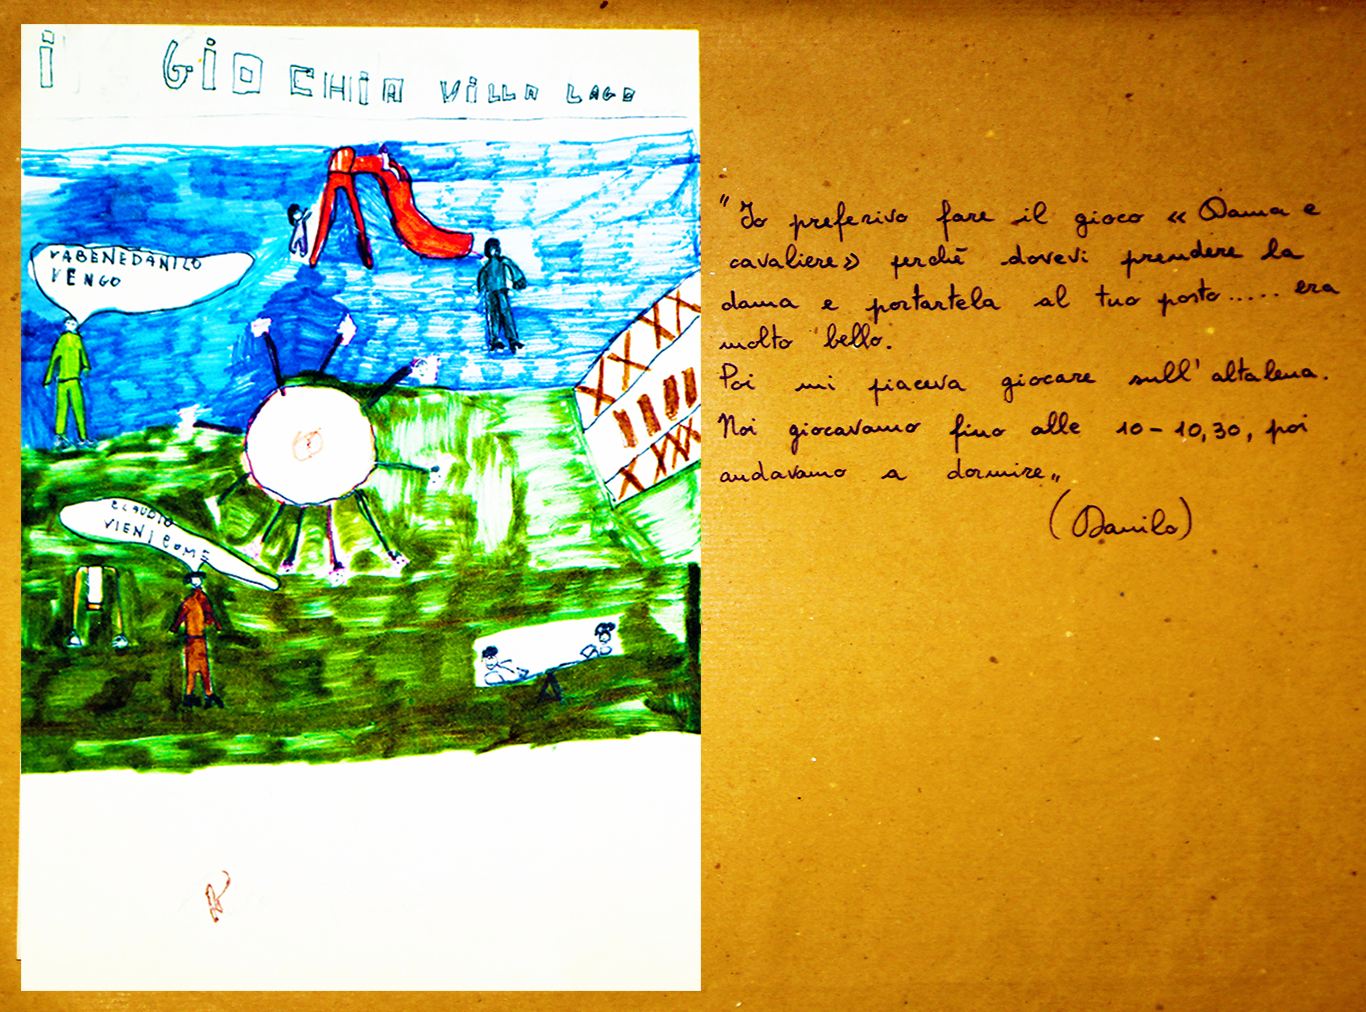 i GIOCHI A VILLA LAGO
VABENEDANILO
VENGO
CLAUDIO
VIENI COME
"Io preferivo fare il gioco « Dama e
cavaliere» perché dovevi prendere la
dama e portartela al tuo posto..... era
molto bello.
Poi mi piaceva giocare sull'altalena.
Noi giocavamo fino alle 10-10,30, poi
andavamo a dormire"
(Danilo)